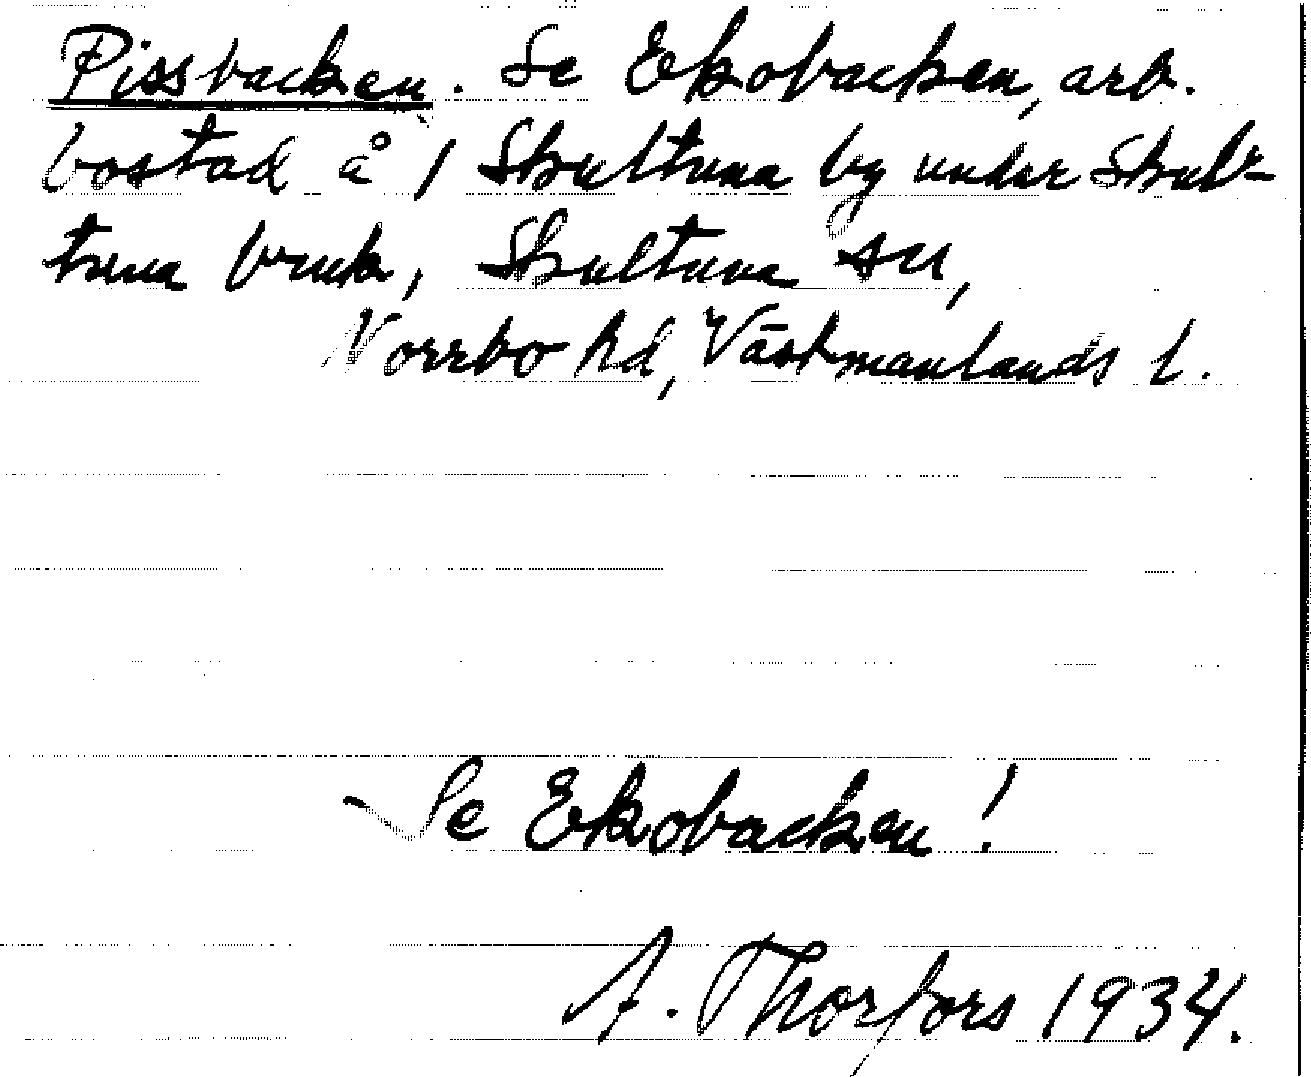 Pissbacken. Se Ekobacken, arb.
bostad å 1 Skultuna by under Skul-
tuna bruk, Skultuna sn,
Norrbo hd, Västmanlands l.
Se Ekobacken!
A. Thorfors 1934.